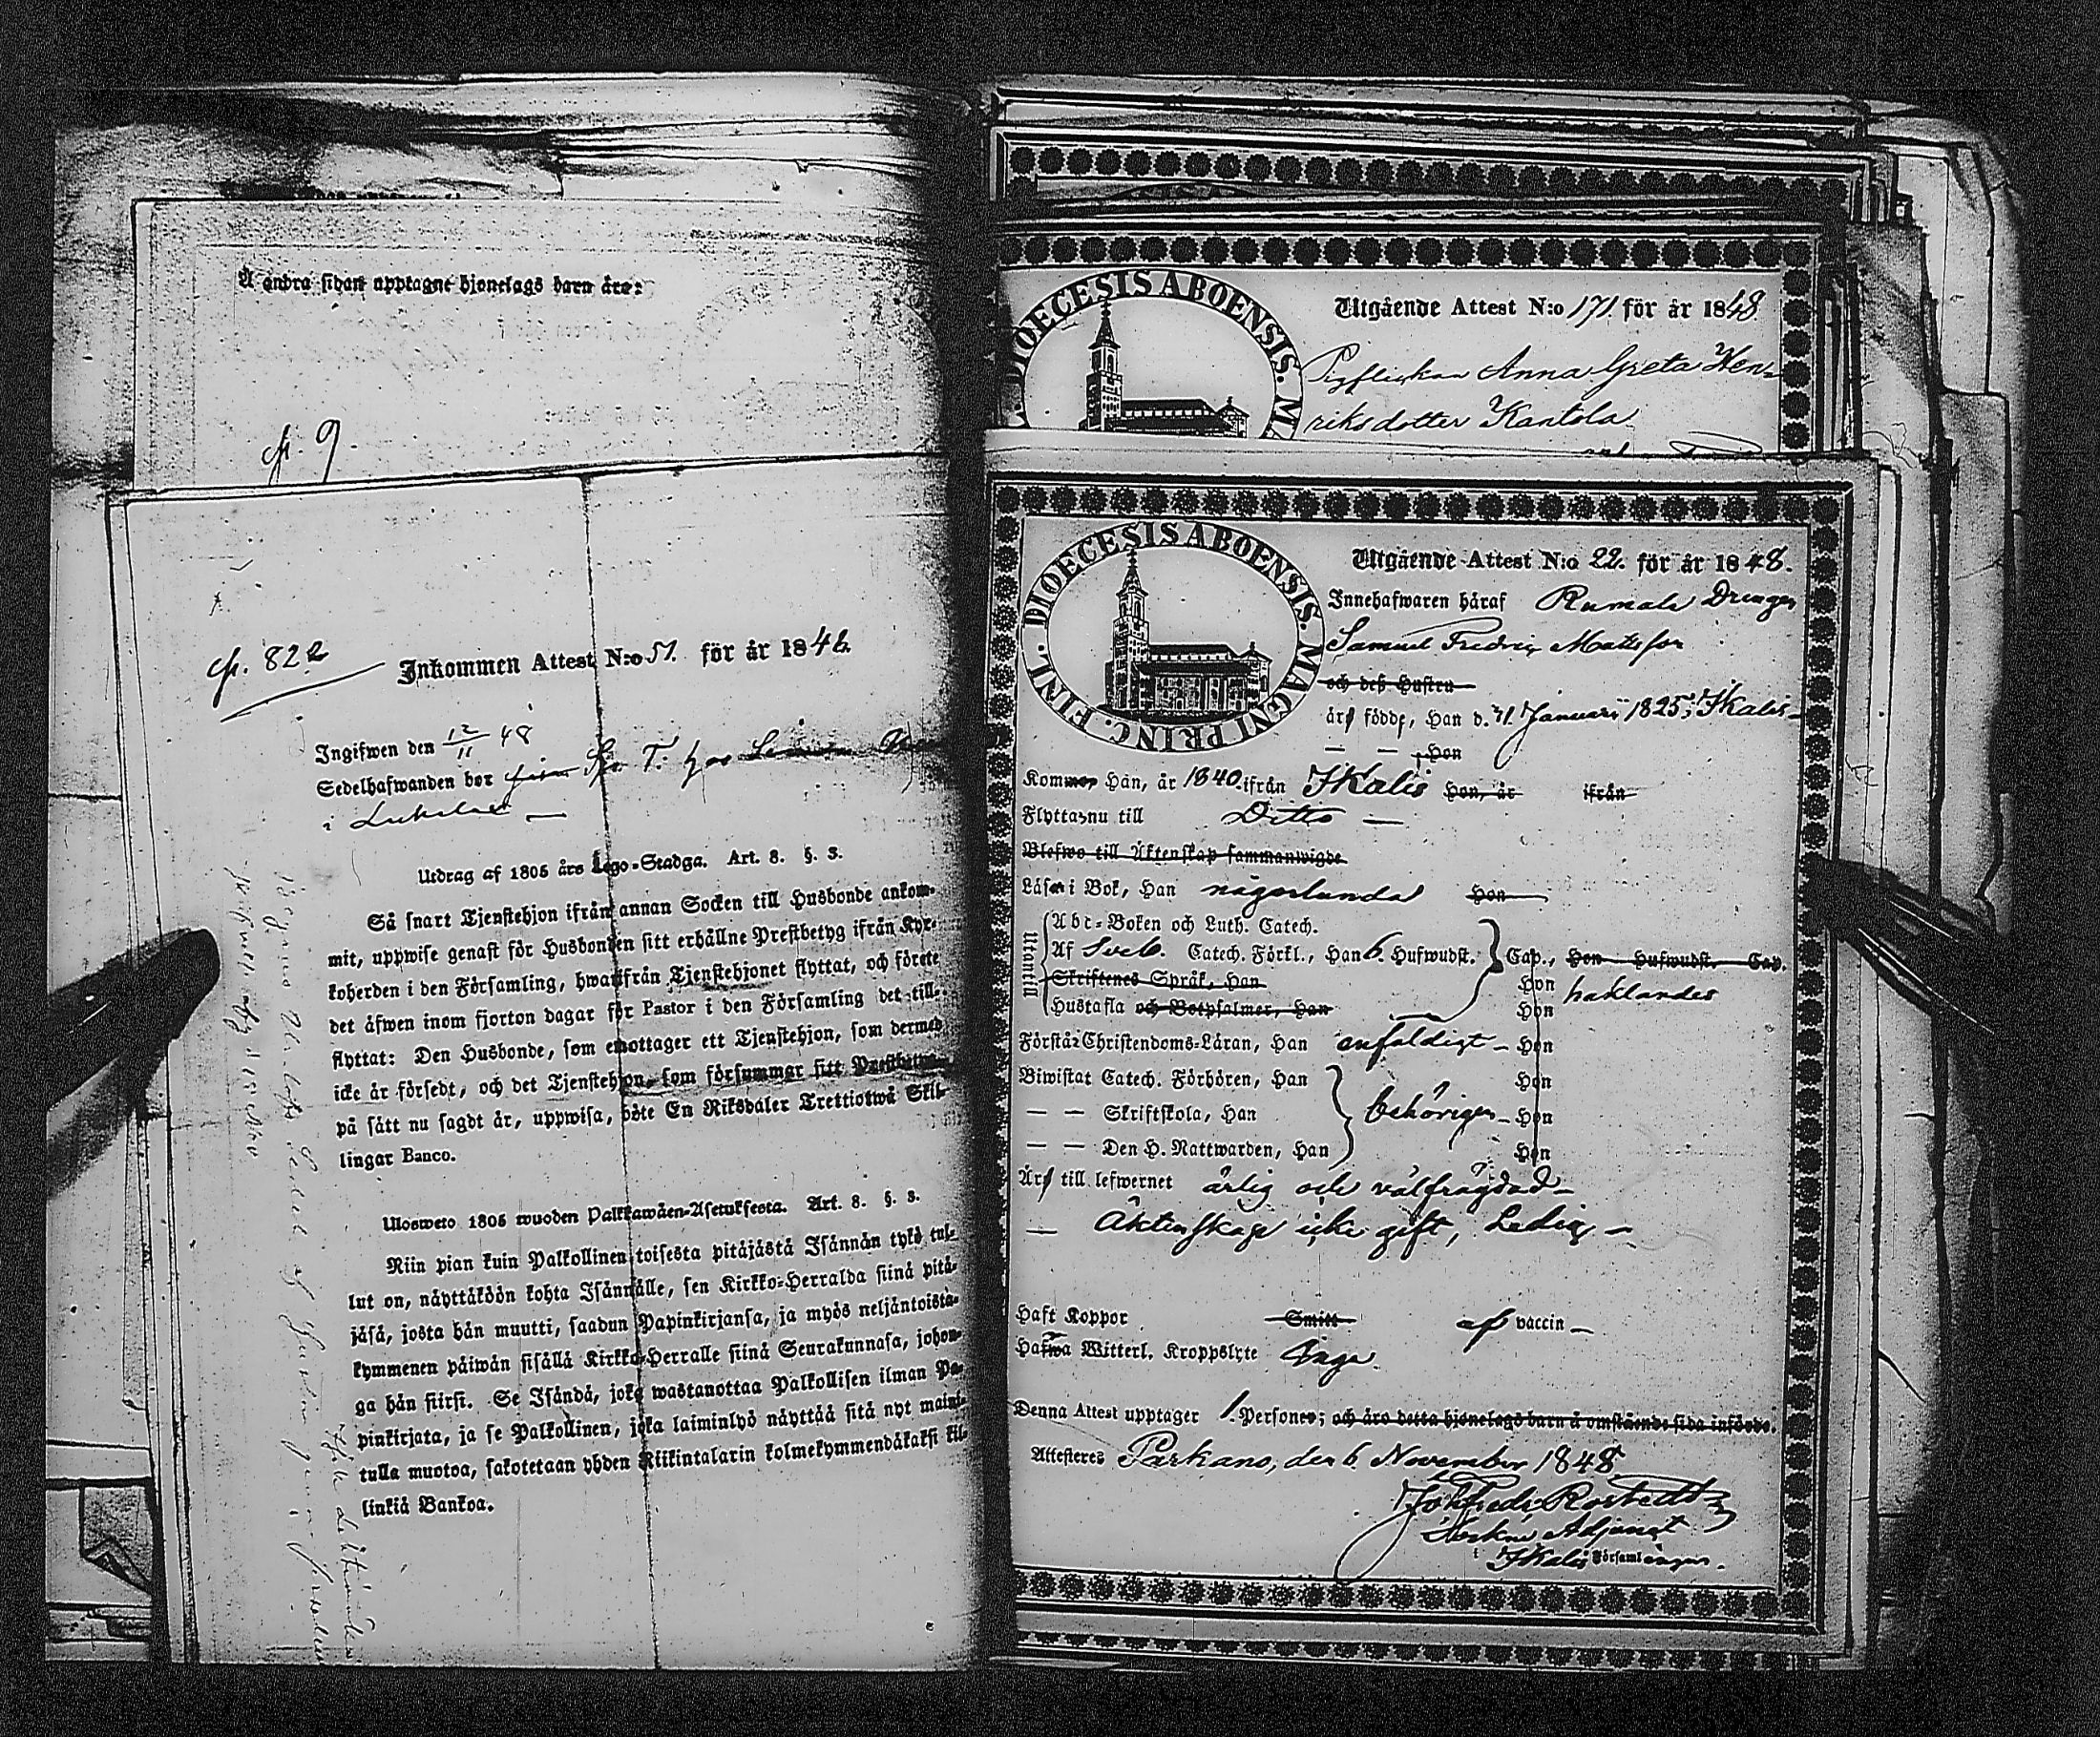 Å andra sidan upptagne hjonelags barn äro:
p. 9.
p. 822
Inkommen Attest N:o 51. för år 1848.
Ingifwen den 12/11 48
Sedelhafwanden bor T. hos
i
Utdrag af 1805 års Lego-Stadga. Art. 8. §. 3.
Så snart Tjenstehjon ifrån annan Socken till Husbonde ankom-
mit, uppwise genast för Husbonden sitt erhållne Prestbetyg ifrån Kyr-
koherden i den Församling, hwarifrån Tjenstehjonet flyttat, och förete
det äfwen inom fjorton dagar för Pastor i den Församling det till-
flyttat: Den Husbonde, som emottager ett Tjenstehjon, som dermed
icke är försedt, och det Tjenstehjon, som försummar sitt Prestbetyg
på sätt nu sagdt är, uppwisa, böte En Riksdaler Trettiotwå Skil-
lingar Banco.
Ulosweto 1805 wuoden Palkkawäen-Asetuksesta. Art. 8. §. 3.
Niin pian kuin Palkollinen toisesta pitäjästä Isännän tykö tul-
lut on, näyttäköön kohta Isännälle, sen Kirkko-Herralda siinä pitä-
jäsä, josta hän muutti, saadun Papinkirjansa, ja myös neljäntoista-
kymmenen päiwän sisällä Kirkko-Herralle siinä Seurakunnasa, johon-
ga hän siirsi. Se Isändä, joka wastanottaa Palkollisen ilman Pa-
pinkirjata, ja se Palkollinen, joka laiminlyö näyttää sitä nyt maini-
tulla muotoa, sakotetaan yhden Riikintalarin kolmekymmendäkaksi kil-
linkiä Bankoa.
DIOECESIS ABOENSIS. MA
Utgående Attest N:o 171. för år 1848.
Pigflickan Anna Greta Hen-
riksdotter Kantola
DIOECESIS ABOENSIS. MAGNI PRINC. FINL.
Utgående Attest N:o 22. för år 1848.
Innehafwaren häraf Rumala Drengen
Samuel Fredric Mattsson
och dess Hustru
är född, Han d. 31 Januari 1825, i Ikalis
— — , Hon
Kommen Han, år 1840. ifrån Ikalis Hon, år ifrån
Flyttar nu till Ditto —
Blefwo till Äktenskap sammanwigde
Läser i Bok, Han någorlunda Hon
Utantill
Abc-Boken och Luth. Catech.
Af Sveb. Catech. Förkl., Han 6. Hufwudst. Cap., Hon Hufwudst. Cap.
Skriftenes Språk, Han Hon haklandes
Hustafla och Botpsalmer, Han Hon
Förstår Christendoms-Läran, Han enfaldigt — Hon
Biwistat Catech. Förhören, Han Hon
— — Skriftskola, Han behörigen — Hon
— — Den H. Nattwarden, Han Hon
Är till lefwernet ärlig och välfrägdad —
— Äktenskap icke gift, Ledig —
Haft Koppor Smitt af vaccin —
Hafwa Witterl. Kroppslyte Inga.
Denna Attest upptager 1. Person; och äro detta hjonelags barn å omstående sida införde.
Attesteras Parkano, den 6. November 1848
Joh. Fredr. Rostedt
Adjunct
i Ikalis Församlingen.